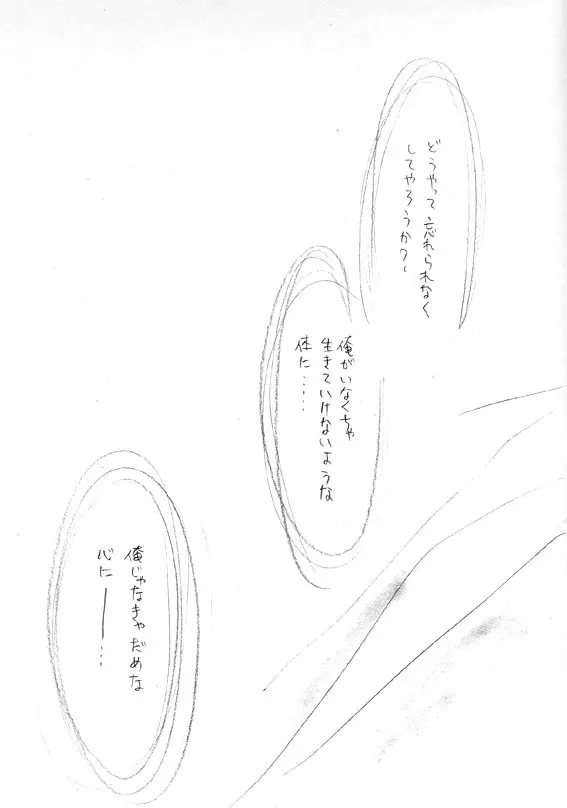 どうやって忘れられなく
してやろうか？
俺がいなくちゃ
生きていけないような
体に……
俺じゃなきゃだめな
心に――…